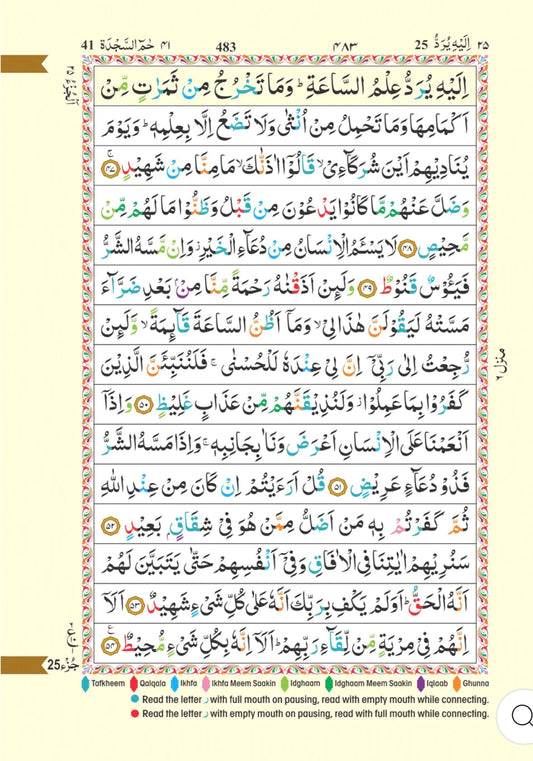 ٢٥ اِلَيْهِ يُرَدُّ 25 ٤٨٣ 483 حٰمٓ السَّجْدَة ٤١ 41
اِلَيْهِ يُرَدُّ عِلْمُ السَّاعَةِ ؕ وَمَا تَخْرُجُ مِنْ ثَمَرٰتٍ مِّنْ
اَكْمَامِهَا وَمَا تَحْمِلُ مِنْ اُنْثٰى وَلَا تَضَعُ اِلَّا بِعِلْمِهٖ ؕ وَيَوْمَ
يُنَادِيْهِمْ اَيْنَ شُرَكَآءِىْ ۙ قَالُوْۤا اٰذَنّٰكَ ۙ مَا مِنَّا مِنْ شَهِيْدٍ ۚ ﴿٤٧﴾
وَضَلَّ عَنْهُمْ مَّا كَانُوْا يَدْعُوْنَ مِنْ قَبْلُ وَظَنُّوْا مَا لَهُمْ مِّنْ
مَّحِيْصٍ ﴿٤٨﴾ لَا يَسْـَٔمُ الْاِنْسَانُ مِنْ دُعَآءِ الْخَيْرِ ۫ وَاِنْ مَّسَّهُ الشَّرُّ
فَيَـُٔوْسٌ قَنُوْطٌ ﴿٤٩﴾ وَلَئِنْ اَذَقْنٰهُ رَحْمَةً مِّنَّا مِنْۢ بَعْدِ ضَرَّآءَ
مَسَّتْهُ لَيَقُوْلَنَّ هٰذَا لِىْ ۙ وَمَاۤ اَظُنُّ السَّاعَةَ قَآئِمَةً ۙ وَّلَئِنْ
رُّجِعْتُ اِلٰى رَبِّىْۤ اِنَّ لِىْ عِنْدَهٗ لَلْحُسْنٰى ۚ فَلَنُنَبِّئَنَّ الَّذِيْنَ
كَفَرُوْا بِمَا عَمِلُوْا ۫ وَلَنُذِيْقَنَّهُمْ مِّنْ عَذَابٍ غَلِيْظٍ ﴿٥٠﴾ وَاِذَاۤ
اَنْعَمْنَا عَلَى الْاِنْسَانِ اَعْرَضَ وَنَاٰ بِجَانِبِهٖ ۚ وَاِذَا مَسَّهُ الشَّرُّ
فَذُوْ دُعَآءٍ عَرِيْضٍ ﴿٥١﴾ قُلْ اَرَءَيْتُمْ اِنْ كَانَ مِنْ عِنْدِ اللّٰهِ
ثُمَّ كَفَرْتُمْ بِهٖ مَنْ اَضَلُّ مِمَّنْ هُوَ فِىْ شِقَاقٍۭ بَعِيْدٍ ﴿٥٢﴾
سَنُرِيْهِمْ اٰيٰتِنَا فِى الْاٰفَاقِ وَفِىْۤ اَنْفُسِهِمْ حَتّٰى يَتَبَيَّنَ لَهُمْ
اَنَّهُ الْحَقُّ ؕ اَوَلَمْ يَكْفِ بِرَبِّكَ اَنَّهٗ عَلٰى كُلِّ شَىْءٍ شَهِيْدٌ ﴿٥٣﴾ اَلَاۤ
اِنَّهُمْ فِىْ مِرْيَةٍ مِّنْ لِّقَآءِ رَبِّهِمْ ؕ اَلَاۤ اِنَّهٗ بِكُلِّ شَىْءٍ مُّحِيْطٌ ﴿٥٤﴾
منزل ٦
جُزْء 25
Tafkheem Qalqala Ikhfa Ikhfa Meem Saakin Idghaam Idghaam Meem Saakin Iqlaab Ghunna
Read the letter ر with full mouth on pausing, read with empty mouth while connecting.
Read the letter ر with empty mouth on pausing, read with full mouth while connecting.